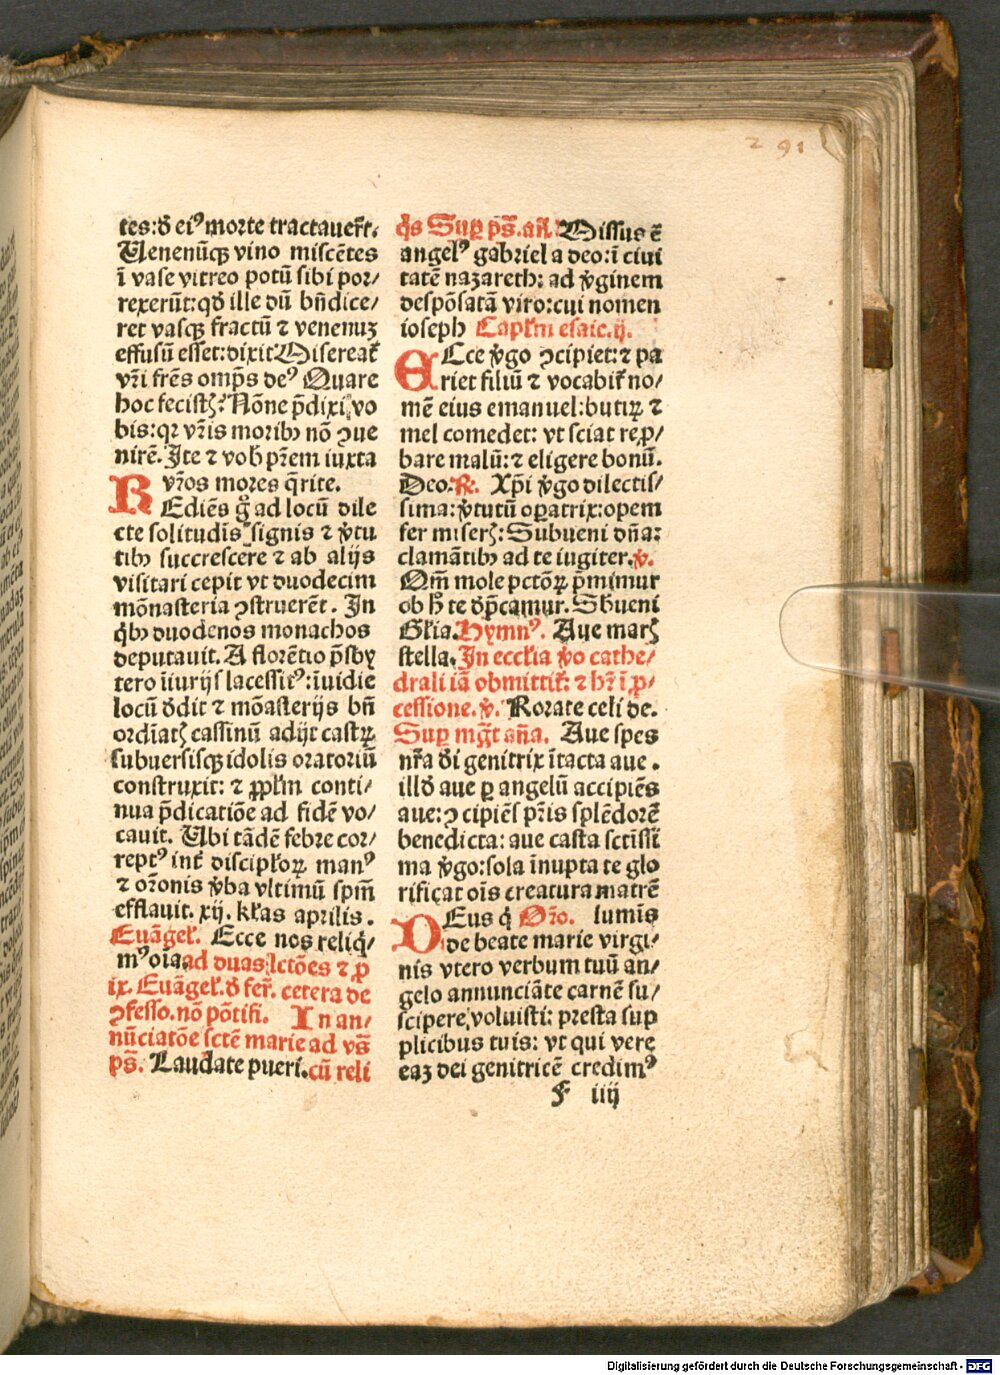 291
tes:đ ei⁹ morte tractauer̃t.
Venenũq; vino miscẽtes
ĩ vase vitreo potũ sibi por/
rexerũt:qđ ille dũ bñdice/
ret vasq; fractũ ⁊ venenuʒ
effusũ esset:dixit Misereat̃
vr̃i frẽs omp̃s de⁹ Quare
hoc fecistꝭ? Nõne p̃dixi vo
bis:qꝛ vr̃is moribꝰ nõ ꝯue
nirẽ. Ite ⁊ vob̃ pr̃em iuxta
vr̃os mores q̃rite.
REdiẽs g̃ ad locũ dile
cte solitudĩs signis ⁊ ꝟtu
tibꝰ succrescere ⁊ ab alijs
visitari cepit vt duodecim
mõnasteria ꝯstruerẽt. In
q̃bꝰ duodenos monachos
deputauit. A florẽtio p̃sby
tero iĩurijs lacessit⁹:ĩuidie
locũ đdit ⁊ mõasterijs bñ
ordĩatꝭ cassinũ adijt castꝝ
subuersisq; idolis oratoriũ
construxit: ⁊ ꝓpl̃m conti/
nua p̃dicatiõe ad fidẽ vo/
cauit. Ubi tãdẽ febre cor/
rept⁹ int̃ discipl̃oꝝ man⁹
⁊ or̃onis ꝟba vltimũ sp̃m
efflauit. xij. kl̃as aprilis.
Euãgel̃. Ecce nos reliq̃/
m⁹ oĩa. ad duas lctões ⁊ ꝓ
ix. Euãgel̃. đ fer̃. cetera de
ꝯfesso. nõ põtifi. In an/
nũciatõe sctẽ marie ad vs̃
ps̃. Laudate pueri. cũ reli
q̃s Suꝑ ps̃. añ. Missus ẽ
angel⁹ gabriel a deo:ĩ ciui
tatẽ nazareth: ad ꝟginem
despõsatã viro:cui nomen
ioseph Capl̃m esaie. ij.
ECce ꝟgo ꝯcipiet:⁊ pa
riet filiũ ⁊ vocabit̃ no/
mẽ eius emanuel:butiꝝ ⁊
mel comedet: vt sciat reꝓ/
bare malũ:⁊ eligere bonũ.
Deo. ℟. Xp̃i ꝟgo dilectis/
sima:ꝟtutũ oꝑatrix:opem
fer miserꝭ:Subueni dña:
clamãtibꝰ ad te iugiter. ℣.
Om̃ mole pctõꝝ p̃mimur
ob h̃ te đp̃camur. Sbueni
Gl̃ia. Hymn⁹. Aue marꝭ
stella. In eccl̃ia ꝟo cathe/
drali iã obmittit̃: ⁊ hr̃ ĩ ꝓ/
cessione. ℣. Rorate celi de.
Suꝑ mg̃t añа. Aue spes
nr̃a đi genitrix ĩtacta aue.
illđ aue ꝑ angelũ accipiẽs
aue:ꝯcipiẽs pr̃is splẽdorẽ
benedicta: aue casta sctissi
ma ꝟgo:sola ĩnupta te glo
rificat oĩs creatura matrẽ
DEus q̃ Or̃o. lumĩs
de beate marie virgi/
nis vtero verbum tuũ an/
gelo annunciãte carnẽ su/
scipere voluisti: presta sup
plicibus tuis: vt qui vere
eaʒ dei genitricẽ credim⁹
F iiij
Digitalisierung gefördert durch die Deutsche Forschungsgemeinschaft - DFG